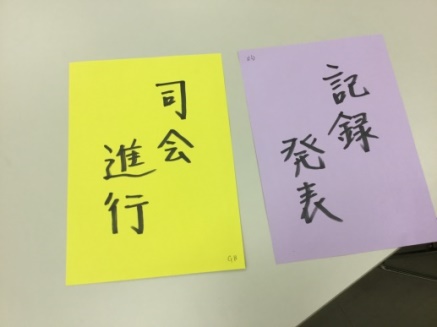 司会
進行
記録
発表